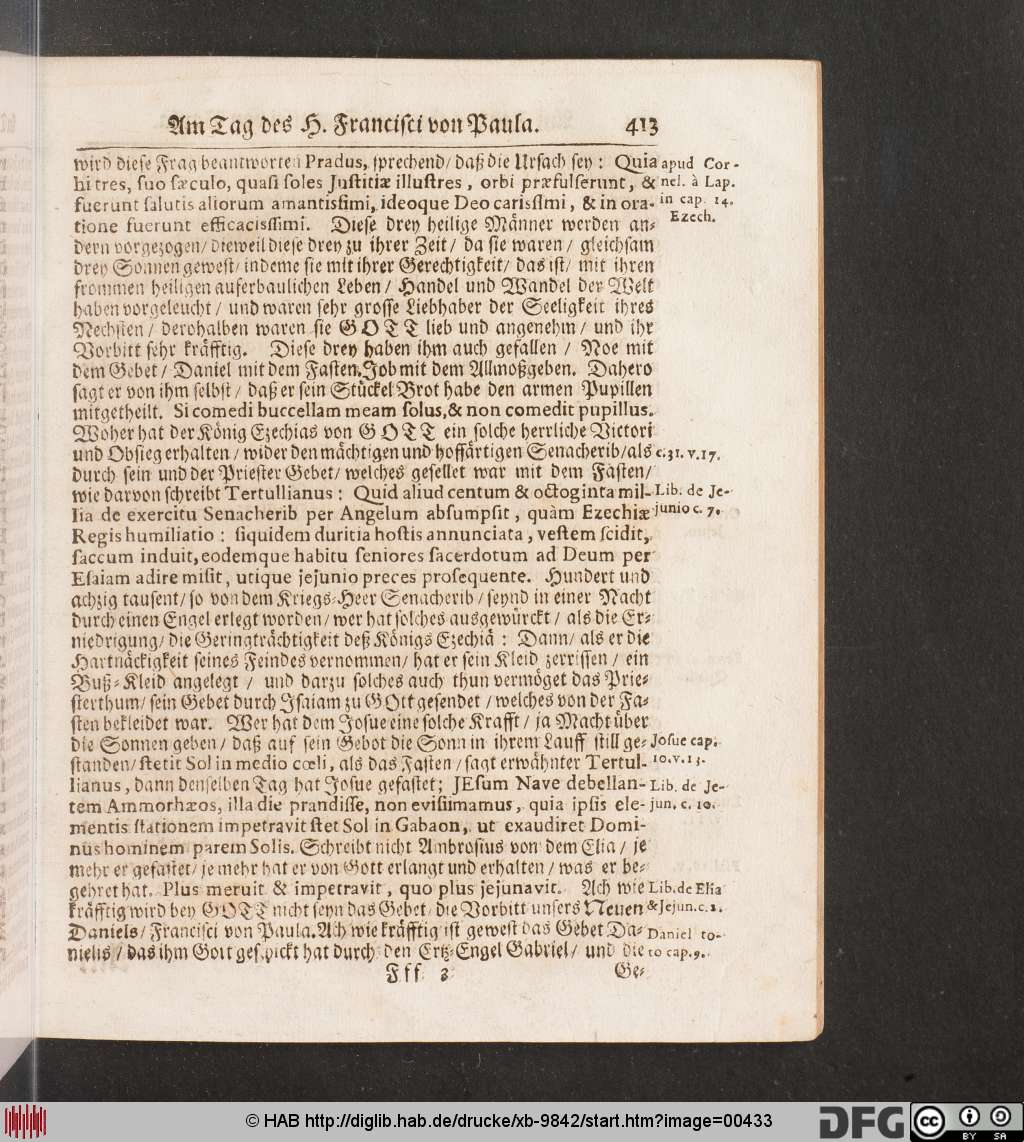 Am Tag des H. Francisci von Paula. 413
wird diese Frag beantworten Pradus, sprechend / daß die Ursach sey: Quia
hi tres, suo sæculo, quasi soles Justitiæ illustres, orbi præfulserunt, &
fuerunt salutis aliorum amantissimi, ideoque Deo carissimi, & in ora-
tione fuerunt efficacissimi. Diese drey heilige Männer werden an-
dern vorgezogen / dieweil diese drey zu ihrer Zeit / da sie waren / gleichsam
drey Sonnen gewest / indeme sie mit ihrer Gerechtigkeit / das ist / mit ihren
frommen heiligen auferbaulichen Leben / Handel und Wandel der Welt
haben vorgeleucht / und waren sehr grosse Liebhaber der Seeligkeit ihres
Nechsten / derohalben waren sie GOTT lieb und angenehm / und ihr
Vorbitt sehr kräfftig. Diese drey haben ihm auch gefallen / Noe mit
dem Gebet / Daniel mit dem Fasten. Job mit dem Allmoßgeben. Dahero
sagt er von ihm selbst / daß er sein Stückel Brot habe den armen Pupillen
mitgetheilt. Si comedi buccellam meam solus, & non comedit pupillus.
Woher hat der König Ezechias von GOTT ein solche herrliche Victori
und Obsieg erhalten / wider den mächtigen und hoffärtigen Senacherib / als
durch sein und der Priester Gebet / welches gesellet war mit dem Fasten /
wie darvon schreibt Tertullianus: Quid aliud centum & octoginta mil-
lia de exercitu Senacherib per Angelum absumpsit, quàm Ezechiæ
Regis humiliatio: siquidem duritia hostis annunciata, vestem scidit,
saccum induit, eodemque habitu seniores sacerdotum ad Deum per
Esaiam adire misit, utique jejunio preces prosequente. Hundert und
achzig tausent / so von dem Kriegs-Heer Senacherib / seynd in einer Nacht
durch einen Engel erlegt worden / wer hat solches ausgewürckt / als die Er-
niedrigung / die Geringträchtigkeit deß Königs Ezechiä: Dann / als er die
Hartnäckigkeit seines Feindes vernommen / hat er sein Kleid zerrissen / ein
Buß-Kleid angelegt / und darzu solches auch thun vermöget das Prie-
sterthum / sein Gebet durch Isaiam zu GOtt gesendet / welches von der Fa-
sten bekleidet war. Wer hat dem Josue eine solche Krafft / ja Macht über
die Sonnen geben / daß auf sein Gebot die Sonn in ihrem Lauff still ge-
standen / stetit Sol in medio cœli, als das Fasten / sagt erwähnter Tertul-
lianus, dann denselben Tag hat Josue gefastet; JEsum Nave debellan-
tem Ammorhæos, illa die prandisse, non existimamus, quia ipsis ele-
mentis stationem impetravit stet Sol in Gabaon, ut exaudiret Domi-
nus hominem parem Solis. Schreibt nicht Ambrosius von dem Elia / je
mehr er gefastet / je mehr hat er von Gott erlangt und erhalten / was er be-
gehret hat. Plus meruit & impetravit, quo plus jejunavit. Ach wie
kräfftig wird bey GOTT nicht seyn das Gebet / die Vorbitt unsers Neuen
Daniels / Francisci von Paula. Ach wie kräfftig ist gewest das Gebet Da-
nielis / das ihm Gott geschickt hat durch den Ertz-Engel Gabriel / und die
Fff 3 Ge-
apud Cor-
nel. à Lap.
in cap. 14.
Ezech.
c. 31. v. 17.
Lib. de Je-
junio c. 7.
Josue cap.
10. v. 13.
Lib. de Je-
jun. c. 10.
Lib. de Elia
& Jejun. c. 2.
Daniel to-
to cap. 9.
© HAB http://diglib.hab.de/drucke/xb-9842/start.htm?image=00433
DFG
cc
BY SA